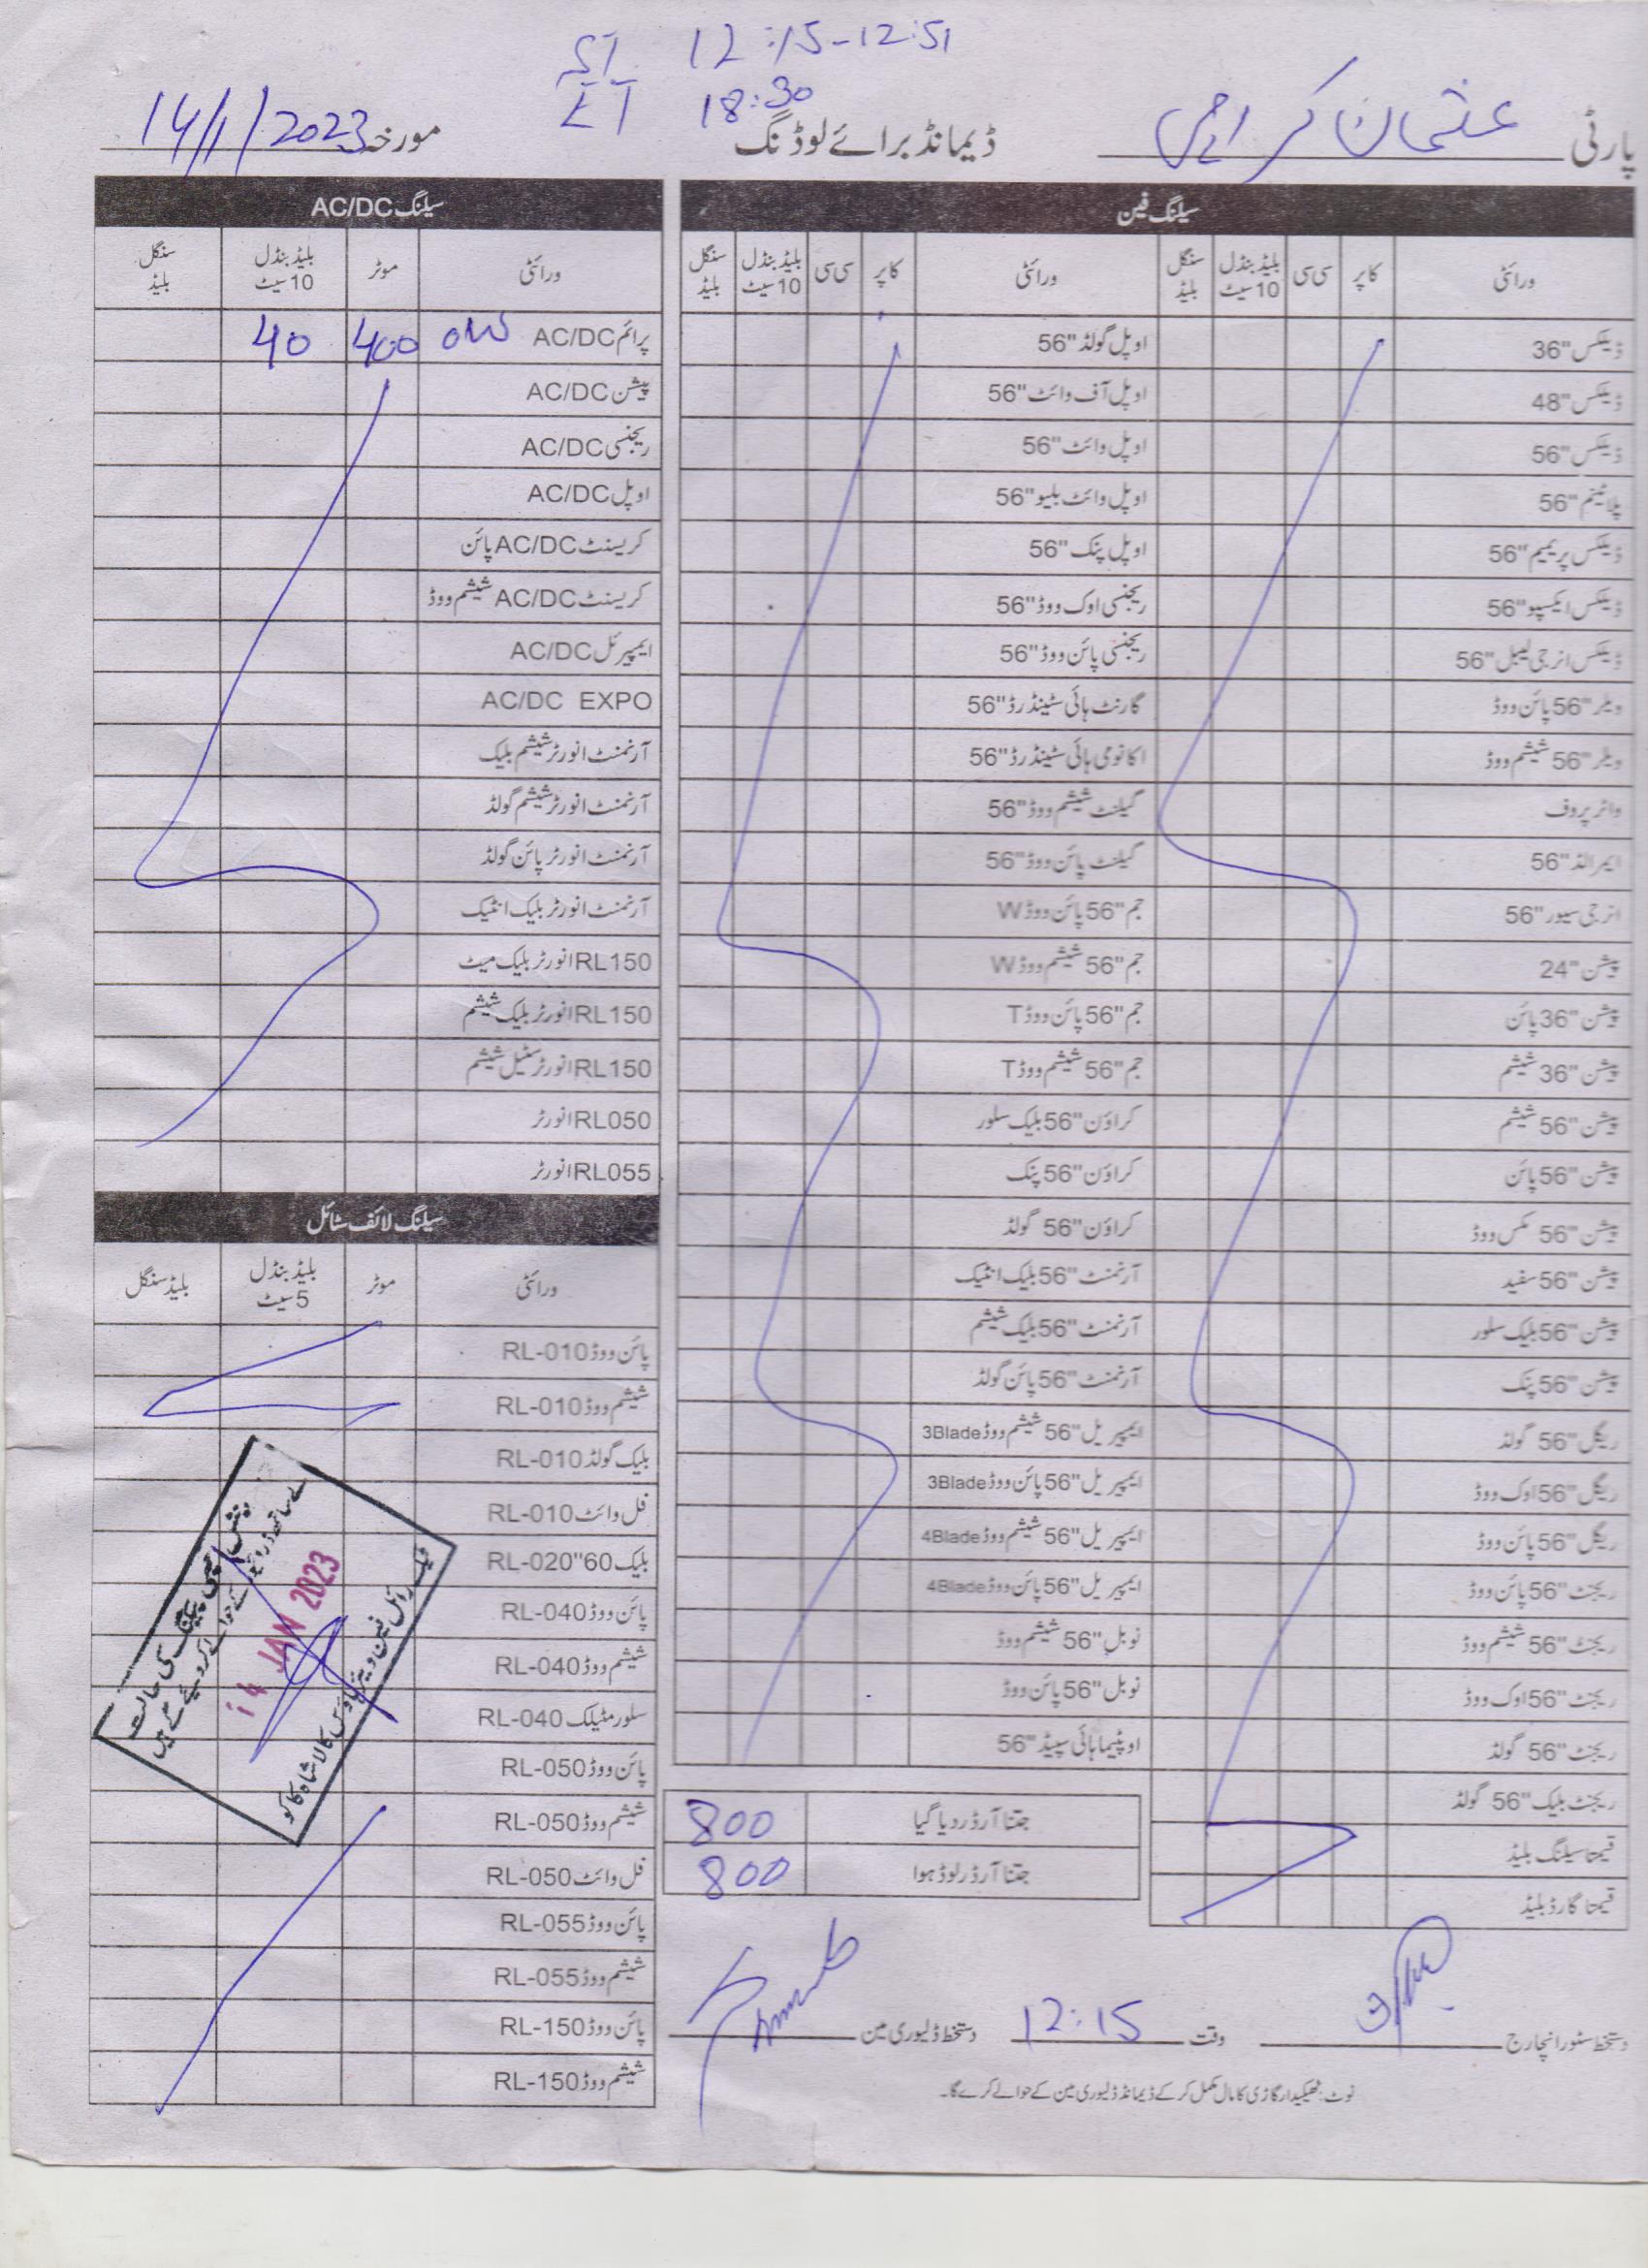 12:15-12:51
18:30
پارٹی عثمان کراچی
ڈیمانڈ برائے لوڈنگ
مورخہ 14/1/2023
سیلنگ فین
ورائٹی کاپر سی سی بلیڈ بنڈل 10 سیٹ سنگل بلیڈ
ڈیلکس "36
ڈیلکس "48
ڈیلکس "56
پلاٹینم "56
ڈیلکس پریمیم "56
ڈیلکس ایکسپو "56
ڈیلکس انرجی لیبل "56
ویلر "56 پائن ووڈ
ویلر "56 شیشم ووڈ
واٹر پروف
ایمرالڈ "56
انرجی سیور "56
پیشن "24
پیشن "36 پائن
پیشن "36 شیشم
پیشن "56 شیشم
پیشن "56 پائن
پیشن "56 مکس ووڈ
پیشن "56 سفید
پیشن "56 بلیک سلور
پیشن "56 پنک
ریگل "56 گولڈ
ریگل "56 اوک ووڈ
ریگل "56 پائن ووڈ
ریجنٹ "56 پائن ووڈ
ریجنٹ "56 شیشم ووڈ
ریجنٹ "56 اوک ووڈ
ریجنٹ "56 گولڈ
ریجنٹ بلیک "56 گولڈ
قیمتا سیلنگ بلیڈ
قیمتا گارڈ بلیڈ
ورائٹی کاپر سی سی بلیڈ بنڈل 10 سیٹ سنگل بلیڈ
اوپل گولڈ "56
اوپل آف وائٹ "56
اوپل وائٹ "56
اوپل وائٹ بلیو "56
اوپل پنک "56
ریجنسی اوک ووڈ "56
ریجنسی پائن ووڈ "56
گارنٹ ہائی سٹینڈرڈ "56
اکانومی ہائی سٹینڈرڈ "56
گیلنٹ شیشم ووڈ "56
گیلنٹ پائن ووڈ "56
جم "56 پائن ووڈ W
جم "56 شیشم ووڈ W
جم "56 پائن ووڈ T
جم "56 شیشم ووڈ T
کراؤن "56 بلیک سلور
کراؤن "56 پنک
کراؤن "56 گولڈ
آرنمنٹ "56 بلیک انٹیک
آرنمنٹ "56 بلیک شیشم
آرنمنٹ "56 پائن گولڈ
ایمپیریل "56 شیشم ووڈ 3Blade
ایمپیریل "56 پائن ووڈ 3Blade
ایمپیریل "56 شیشم ووڈ 4Blade
ایمپیریل "56 پائن ووڈ 4Blade
نوبل "56 شیشم ووڈ
نوبل "56 پائن ووڈ
اوپٹیما ہائی سپیڈ "56
جتنا آرڈر دیا گیا 800
جتنا آرڈر لوڈ ہوا 800
سیلنگ AC/DC
ورائٹی موٹر بلیڈ بنڈل 10 سیٹ سنگل بلیڈ
پرائم AC/DC OW 400 40
پیشن AC/DC
ریجنسی AC/DC
اوپل AC/DC
کریسنٹ AC/DC پائن
کریسنٹ AC/DC شیشم ووڈ
ایمپیرئل AC/DC
AC/DC EXPO
آرنمنٹ انورٹر شیشم بلیک
آرنمنٹ انورٹر شیشم گولڈ
آرنمنٹ انورٹر پائن گولڈ
آرنمنٹ انورٹر بلیک انٹیک
RL150 انورٹر بلیک میٹ
RL150 انورٹر بلیک شیشم
RL150 انورٹر سٹیل شیشم
RL050 انورٹر
RL055 انورٹر
سیلنگ لائف سٹائل
ورائٹی موٹر بلیڈ بنڈل 5 سیٹ بلیڈ سنگل
پائن ووڈ RL-010
شیشم ووڈ RL-010
بلیک گولڈ RL-010
فل وائٹ RL-010
بلیک 60"RL-020
پائن ووڈ RL-040
شیشم ووڈ RL-040
سلور مٹیلک RL-040
پائن ووڈ RL-050
شیشم ووڈ RL-050
فل وائٹ RL-050
پائن ووڈ RL-055
شیشم ووڈ RL-055
پائن ووڈ RL-150
شیشم ووڈ RL-150
14 JAN 2023
دستخط سٹور انچارج
وقت 12:15
دستخط ڈلیوری مین
نوٹ: ٹھیکیدار گاڑی کا مال مکمل کر کے ڈیمانڈ ڈلیوری مین کے حوالے کرے گا۔